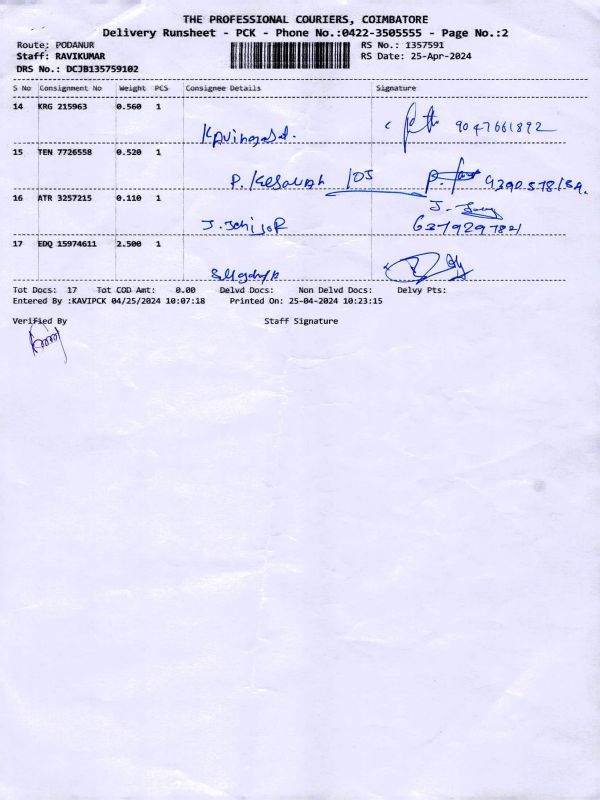 THE PROFESSIONAL COURIERS, COIMBATORE
Delivery Runsheet - PCK - Phone No.:0422-3505555 - Page No.:2
Route: PODANUR RS No.: 1357591
Staff: RAVIKUMAR RS Date: 25-Apr-2024
DRS No.: DCJB135759102
S No Consignment No Weight PCS Consignee Details Signature
14 KRG 215963 0.560 1
9047661892
15 TEN 7726558 0.520 1
P. 105
16 ATR 3257215 0.110 1
J.
6379297821
17 EDQ 15974611 2.500 1
Tot Docs: 17 Tot COD Amt: 0.00 Delvd Docs: Non Delvd Docs: Delvy Pts:
Entered By :KAVIPCK 04/25/2024 10:07:18 Printed On: 25-04-2024 10:23:15
Verified By Staff Signature